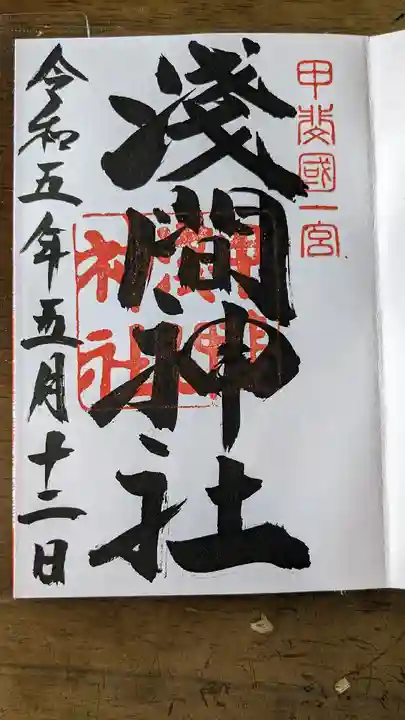 甲斐國一宮
淺間神社
令和五年五月十二日